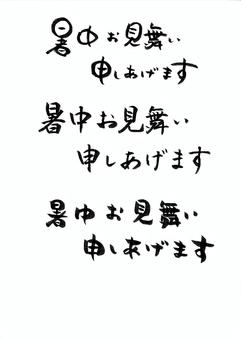 暑中お見舞い
申しあげます
暑中お見舞い
申しあげます
暑中お見舞い
申しあげます